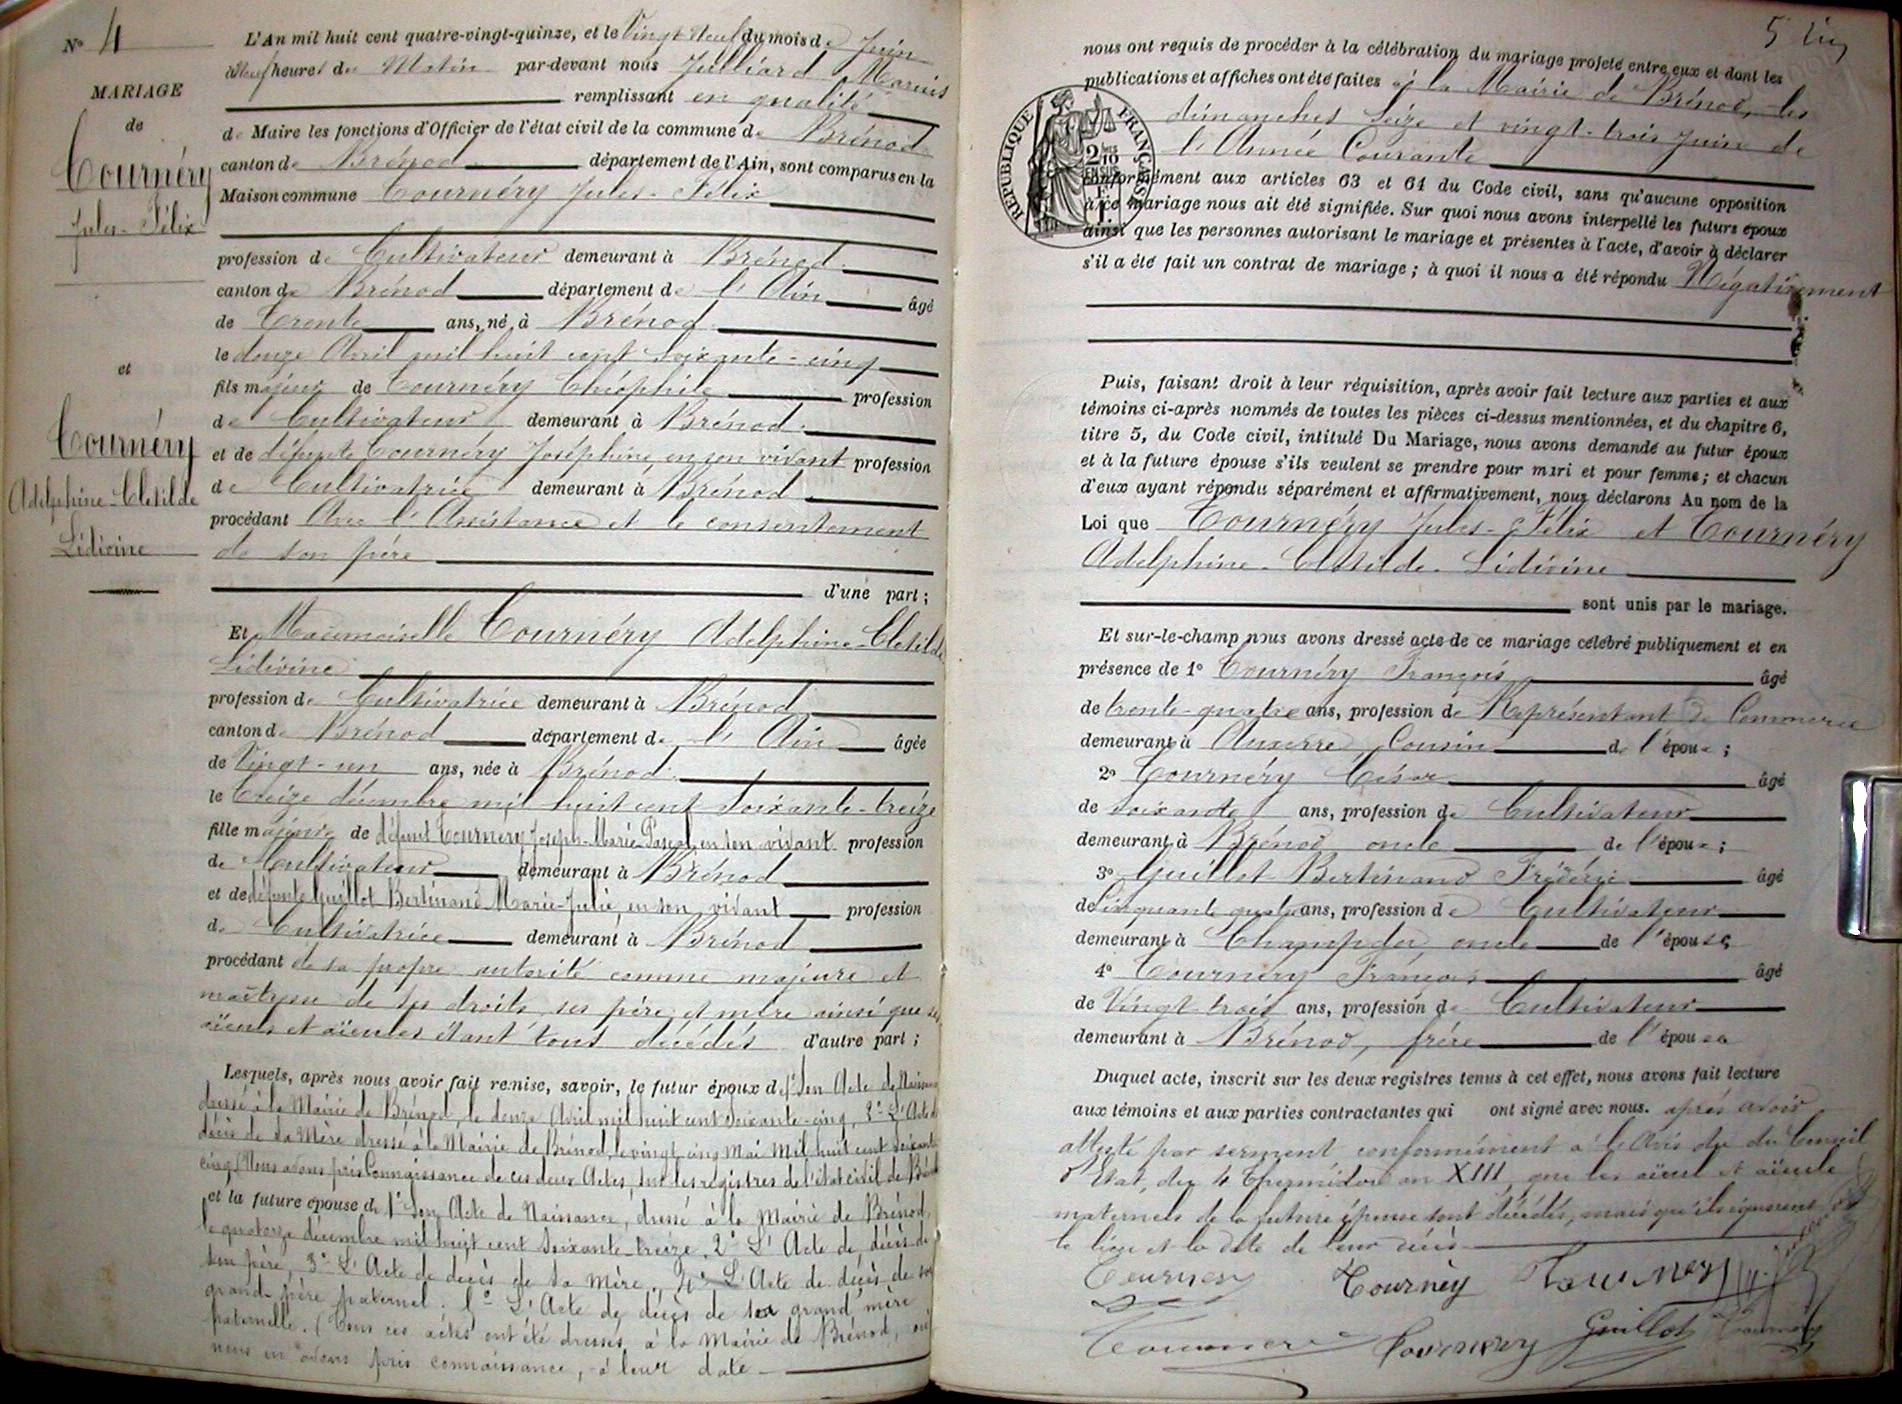 N° 4
MARIAGE
de
Tournéry
Jules-Félix
et
Tournéry
Adelphine-Clotilde
Lidivine
L'An mil huit cent quatre-vingt-quinze, et le Vingt Neuf du mois de Juin
à Neuf heures du Matin par-devant nous Julliard Marius
remplissant en qualité
de Maire les fonctions d'Officier de l'état civil de la commune de Brénod
canton de Brénod département de l'Ain, sont comparus en la
Maison commune Tournéry Jules-Félix
profession de Cultivateur demeurant à Brénod
canton de Brénod département de l'Ain âgé
de Trente ans, né à Brénod
le douze Avril mil huit cent soixante-cinq
fils majeur de Tournéry Théophile profession
de Cultivateur demeurant à Brénod
et de défunte Tournéry Joséphine, en son vivant profession
de Cultivatrice demeurant à Brénod
procédant Avec l'Assistance et le consentement
de son père
d'une part ;
Et Mademoiselle Tournéry Adelphine-Clotilde
Lidivine
profession de Cultivatrice demeurant à Brénod
canton de Brénod département de l'Ain âgée
de Vingt-un ans, née à Brénod
le Treize décembre mil huit cent soixante-treize
fille majeure de défunt Tournery Joseph-Marie-Pascal, en son vivant profession
de Cultivateur demeurant à Brénod
et de défunte Guillot Bertinand Marie-Julie, en son vivant profession
de Cultivatrice demeurant à Brénod
procédant de sa propre autorité comme majeure et
maîtresse de ses droits, ses père et mère ainsi que ses
aïeuls et aïeules étant tous décédés d'autre part ;
Lesquels, après nous avoir fait remise, savoir, le futur époux de 1° Son Acte de Naissance
dressé à la Mairie de Brénod, le douze Avril mil huit cent soixante-cinq, 2° L'Acte de
décès de sa Mère dressé à la Mairie de Brénod, le vingt cinq Mai Mil huit cent soixante
cinq (Nous avons pris Connaissance de ces deux Actes, sur les registres de l'état civil de Brénod
et la future épouse de 1° Son Acte de Naissance, dressé à la Mairie de Brénod,
le quatorze décembre mil huit cent soixante-treize, 2° L'Acte de décès de
son père, 3° L'Acte de décès de sa Mère, 4° L'Acte de décès de son
grand-père paternel. 5° L'Acte de décès de sa grand'mère
paternelle. (Tous ces actes ont été dressés, à la Mairie de Brénod, où
nous en avons pris connaissance, à leur date
5
nous ont requis de procéder à la célébration du mariage projeté entre eux et dont les
publications et affiches ont été faites à la Mairie de Brénod, les
dimanches Seize et vingt-trois Juin de
l'Année Courante
RÉPUBLIQUE FRANÇAISE
conformément aux articles 63 et 64 du Code civil, sans qu'aucune opposition
à ce mariage nous ait été signifiée. Sur quoi nous avons interpellé les futurs époux
ainsi que les personnes autorisant le mariage et présentes à l'acte, d'avoir à déclarer
s'il a été fait un contrat de mariage ; à quoi il nous a été répondu Négativement
Puis, faisant droit à leur réquisition, après avoir fait lecture aux parties et aux
témoins ci-après nommés de toutes les pièces ci-dessus mentionnées, et du chapitre 6,
titre 5, du Code civil, intitulé Du Mariage, nous avons demandé au futur époux
et à la future épouse s'ils veulent se prendre pour mari et pour femme ; et chacun
d'eux ayant répondu séparément et affirmativement, nous déclarons Au nom de la
Loi que Tournéry Jules-Félix et Tournéry
Adelphine-Clotilde-Lidivine
sont unis par le mariage.
Et sur-le-champ nous avons dressé acte de ce mariage célébré publiquement et en
présence de 1° Tournéry François âgé
de trente-quatre ans, profession de Représentant de Commerce
demeurant à Auxerre, Cousin de l'époux ;
2° Tournéry César âgé
de soixante ans, profession de Cultivateur
demeurant à Brénod oncle de l'époux ;
3° Guillot Bertinand Frédéric âgé
de Cinquante quatre ans, profession de Cultivateur
demeurant à Champdor oncle de l'épouse
4° Tournéry François âgé
de Vingt-trois ans, profession de Cultivateur
demeurant à Brénod, frère de l'épouse
Duquel acte, inscrit sur les deux registres tenus à cet effet, nous avons fait lecture
aux témoins et aux parties contractantes qui ont signé avec nous. après avoir
attesté par serment conformément à l'Avis du Conseil
d'Etat, du 4 Thermidor an XIII, que les aïeul et aïeule
maternels de la future épouse sont décédés, mais qu'ils ignorent
le lieu et la date de leur décès
Tournery Tournéry Tournery
Tournery Tournery Guillot